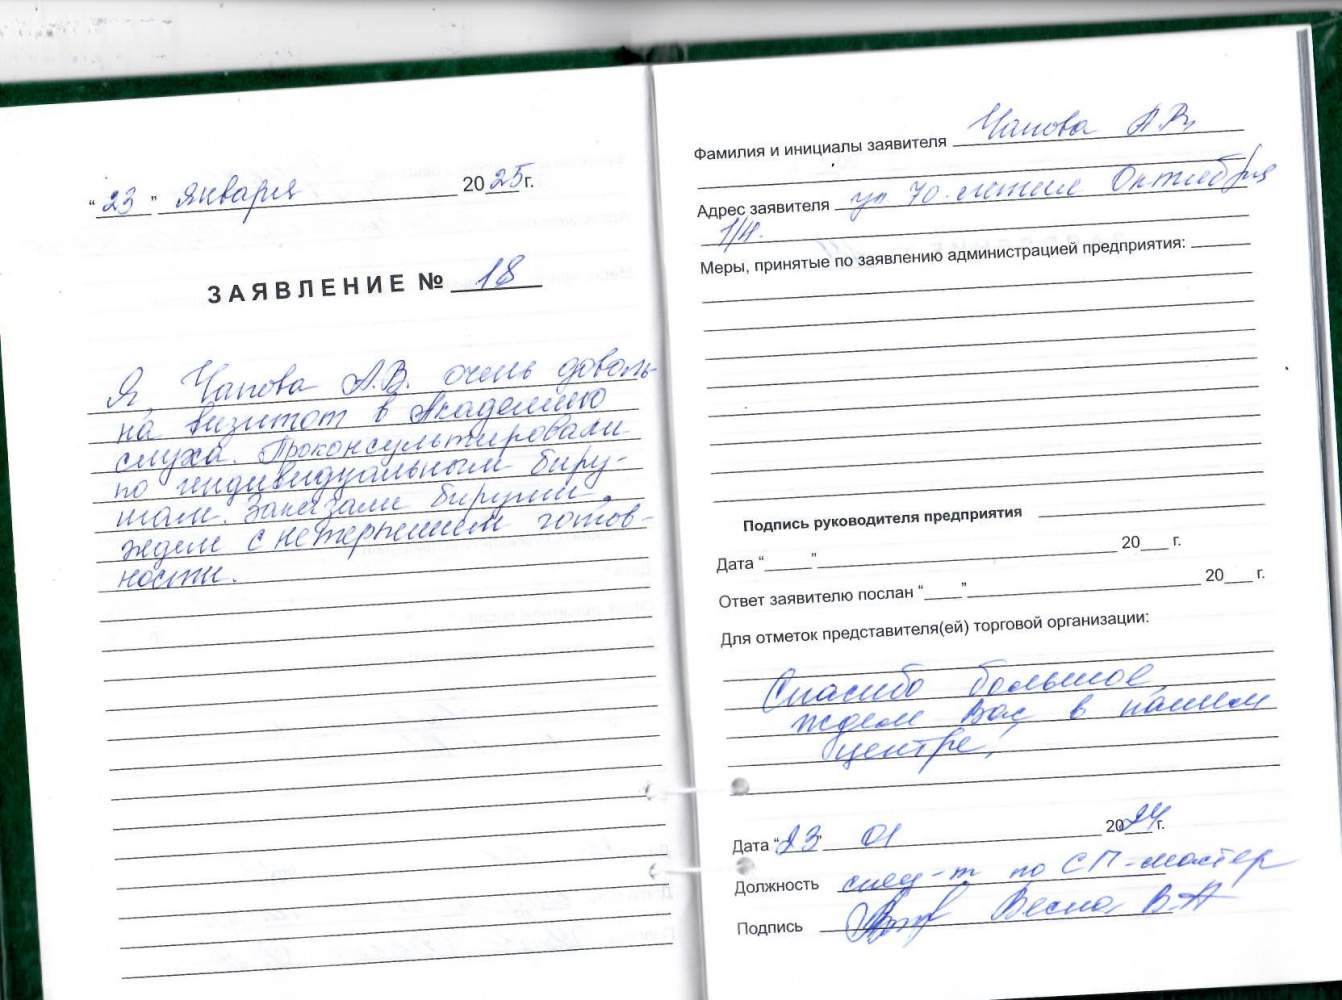 “23” января 2025г.
ЗАЯВЛЕНИЕ № 18
Я Чапова А.В. очень доволь-
на визитом в Академию
слуха. Проконсультировали
по индивидуальным беру-
шам. Заказали беруши.
ждем с нетерпением готов-
ности.
Фамилия и инициалы заявителя Чапова А.В.
Адрес заявителя ул 70-летия Октября
1/4.
Меры, принятые по заявлению администрацией предприятия:
Подпись руководителя предприятия
Дата “ ” 20 г.
Ответ заявителю послан “ ” 20 г.
Для отметок представителя(ей) торговой организации:
Спасибо большое,
ждем Вас в нашем
центре!
Дата “23” 01 2024г.
Должность спец-т по СП-мастер
Подпись Весна В.А